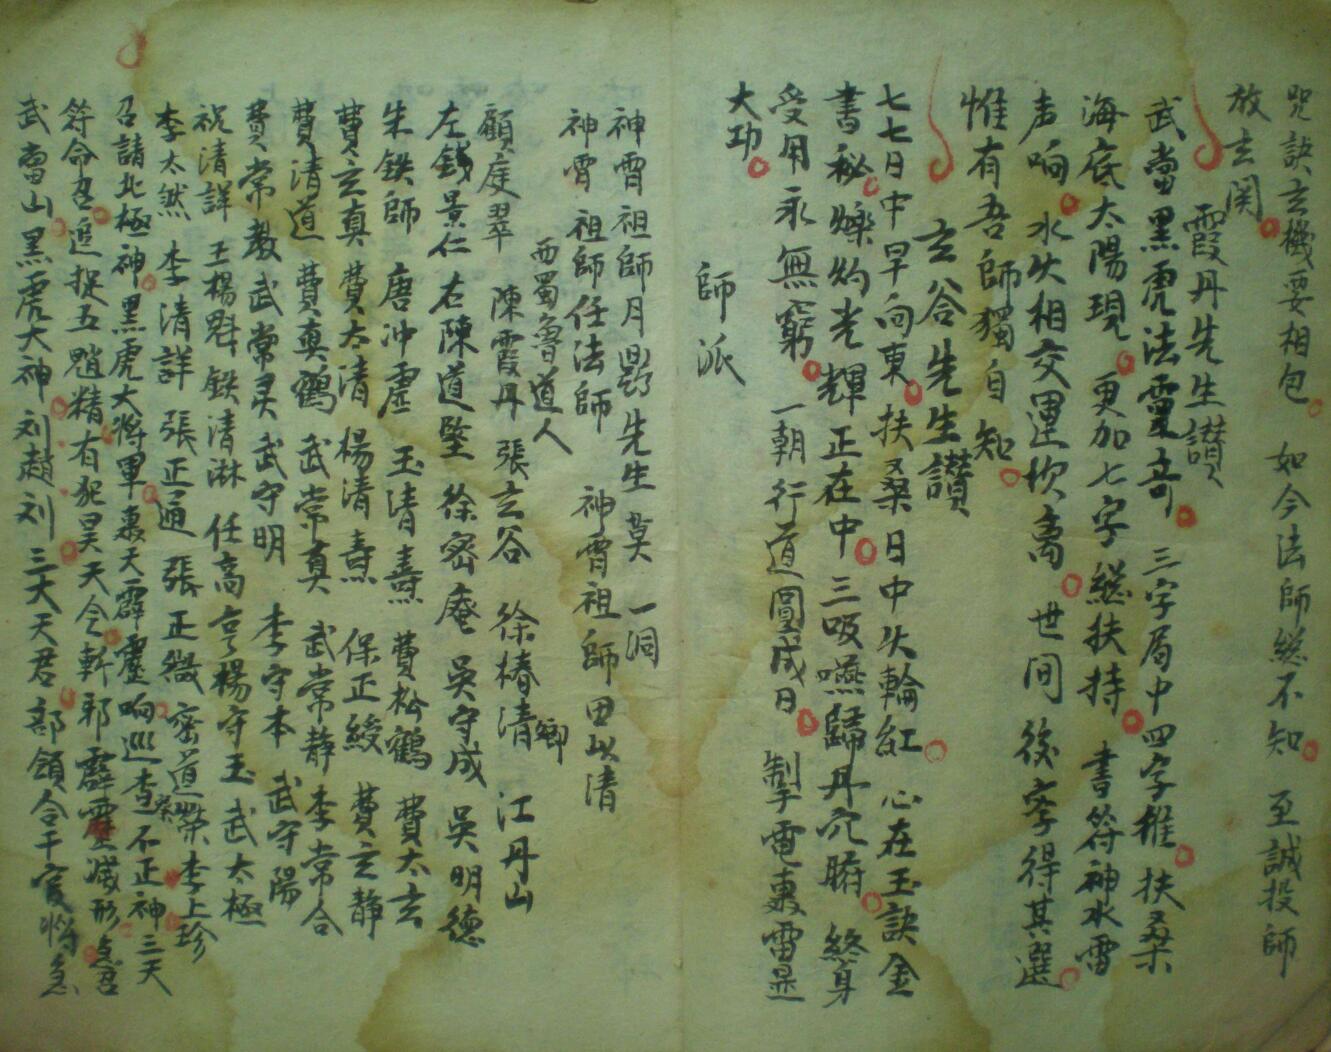 咒訣玄機要相包 如今法師總不知 至誠投師
放玄関
霞丹先生讃
武當黑虎法靈奇 三字局中四字推 扶桑
海底太陽現 更加七字總扶持 書符神水雷
声响 水火相交運坎离 世间後学得其選
惟有吾師獨自知
玄谷先生讃
七七日中早向東 扶桑日中火輪紅 心在玉訣金
書秘 爍灼光輝正在中 三吸嚥歸丹穴腑 終身
受用永無窮 一朝行道圓成日 制電轟雷是
大功
師派
神霄祖師月鼎先生莫一洞
神霄祖師任法師 神霄祖師田以清
西蜀魯道人
顧庭翠 陳霞丹 張玄谷 徐椿清卿 江丹山
左錢景仁 右陳道堅 徐密庵 吳守成 吳明德
朱鉄師 唐冲虛 玉清壽 費松鶴 費太玄
費玄真 費太清 楊清熹 保正綬 費玄靜
費清道 費真鶴 武常真 武常靜 李常合
費常教 武常灵 武守明 李守本 武守陽
祝清詳 王楊魁 鉄清淋 任高亨 楊守玉 武太極
李太然 李清詳 張正通 張正微 密道榮 李上珍
召請北極神黑虎大將軍轟天霹靂响巡查不正神三天
符命召追捉五魈精有犯昊天令斬邪霹靂滅形急召
武當山黑虎大神刘趙刘三天天君部領合干官將急